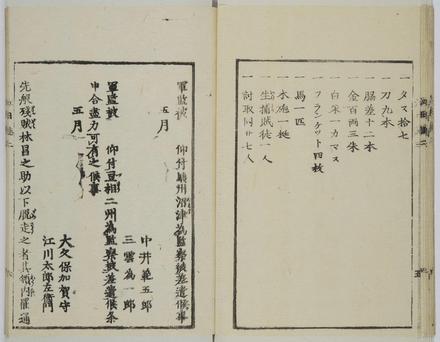 一 タス拾七
一 刀九本
一 脇差十二本
一 金百両三朱
一 白米一カマス
一 フランケット四枚
一 馬一匹
一 水砲一挺
一 生捕賊徒一人
一 討取同廿七人
軍監被 仰付駿州沼津為監察被差遣候事
五月
中井範五郎
三雲為一郎
軍監被 仰付豆相二州為監察被差遣候条
申合盡力可有之候事
五月
大久保加賀守
江川太郎左衛門
先般残賊林昌之助以下脱走之者其領内罷通